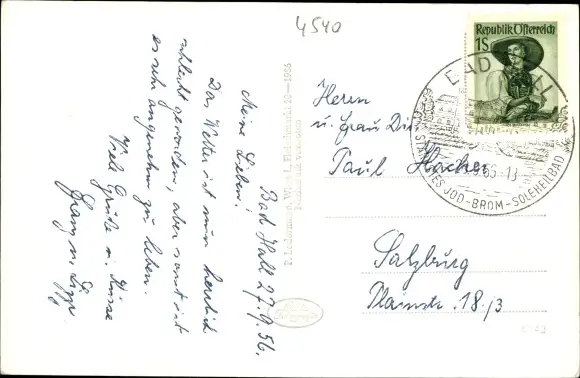 4540
Republik Österreich
1S
BAD HALL
JOD-BROM-SOLEHEILBAD
Bad Hall 27.9.56.
Meine Lieben!
Das Wetter ist nun
schlecht geworden, aber sonst ist
es sehr angenehm zu leben.
Viele Grüße u. Küsse
P. Ledermann, Wien I, Fleischmarkt 20—1956
Herrn
u. Frau
Paul Hacker
Salzburg
18/3